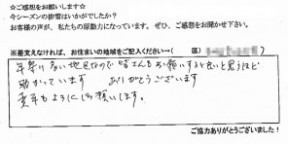 ☆ご感想をお願いします☆
今シーズンの除雪はいかがでしたか?
お客様の声が、私たちの原動力になっています。ぜひ、ご感想をお聞かせ下さい。
※差支えなければ、お住まいの地域をご記入ください→( 区)
年寄りの多い地区なので皆さんもお願いすると良いと思うほど
助かっています ありがとうございます
来年もよろしくお願いします。
ご協力ありがとうございました!